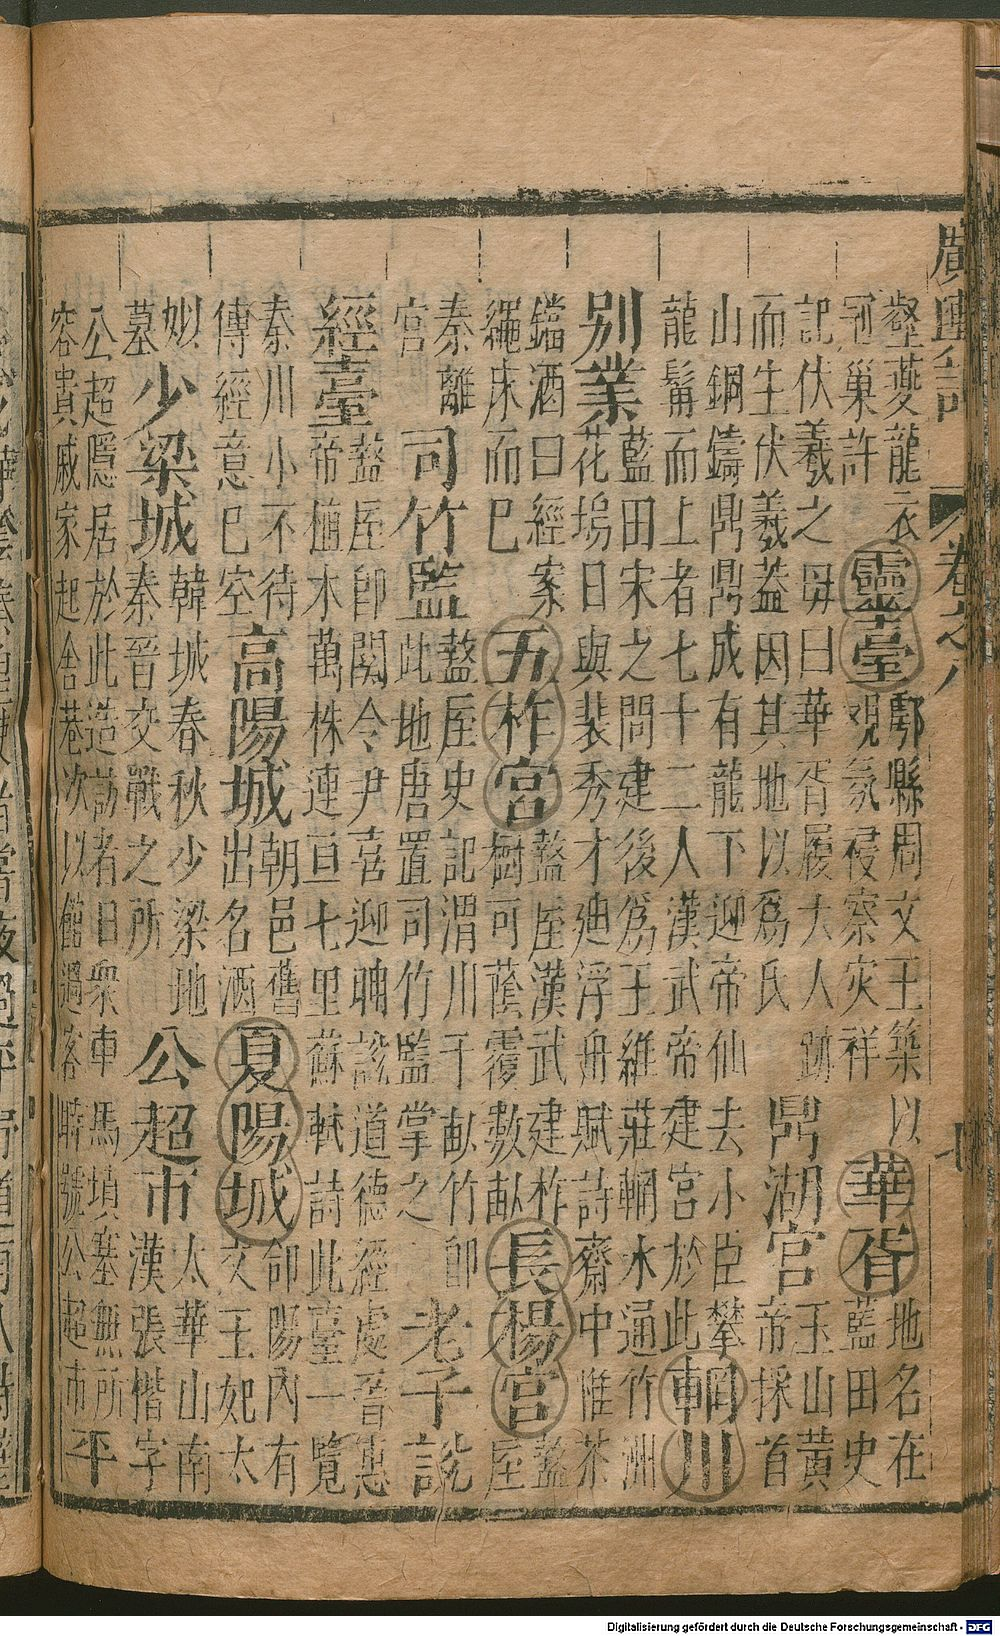 廣輿記 卷之八 七
壑夔龍衣
冠巢許
靈臺
鄠縣周文王築以
觀氛祲察災祥
華胥
地名在
藍田史
記伏羲之母曰華胥履大人跡
而生伏羲蓋因其地以爲氏
鼎湖宮
玉山黃
帝採首
山銅鑄鼎鼎成有龍下迎帝仙去小臣攀
龍髯而上者七十二人漢武帝建宮於此
輞川
別業
藍田宋之問建後爲王維莊輞水通竹洲
花塢日與裴秀才廸浮舟賦詩齋中惟茶
鐺酒臼經案
繩床而已
五柞宮
盩厔漢武建柞
樹可蔭覆數畝
長楊宮
盩
厔
秦離
宮
司竹監
盩厔史記渭川千畝竹卽
此地唐置司竹監掌之
老子說
經臺
盩厔卽関令尹喜迎聃說道德經處晉惠
帝植木萬株連亘七里蘇軾詩此臺一覽
秦川小不待
傳經意已空
高陽城
朝邑舊
出名酒
夏陽城
郃陽內有
文王妃太
姒
墓
少梁城
韓城春秋少梁地
秦晉交戰之所
公超市
太華山南
漢張楷字
公超隱居於此造訪者日衆車馬塡塞無所
容貴戚家起舍巷次以館過客時號公超市
平
Digitalisierung gefördert durch die Deutsche Forschungsgemeinschaft - DFG